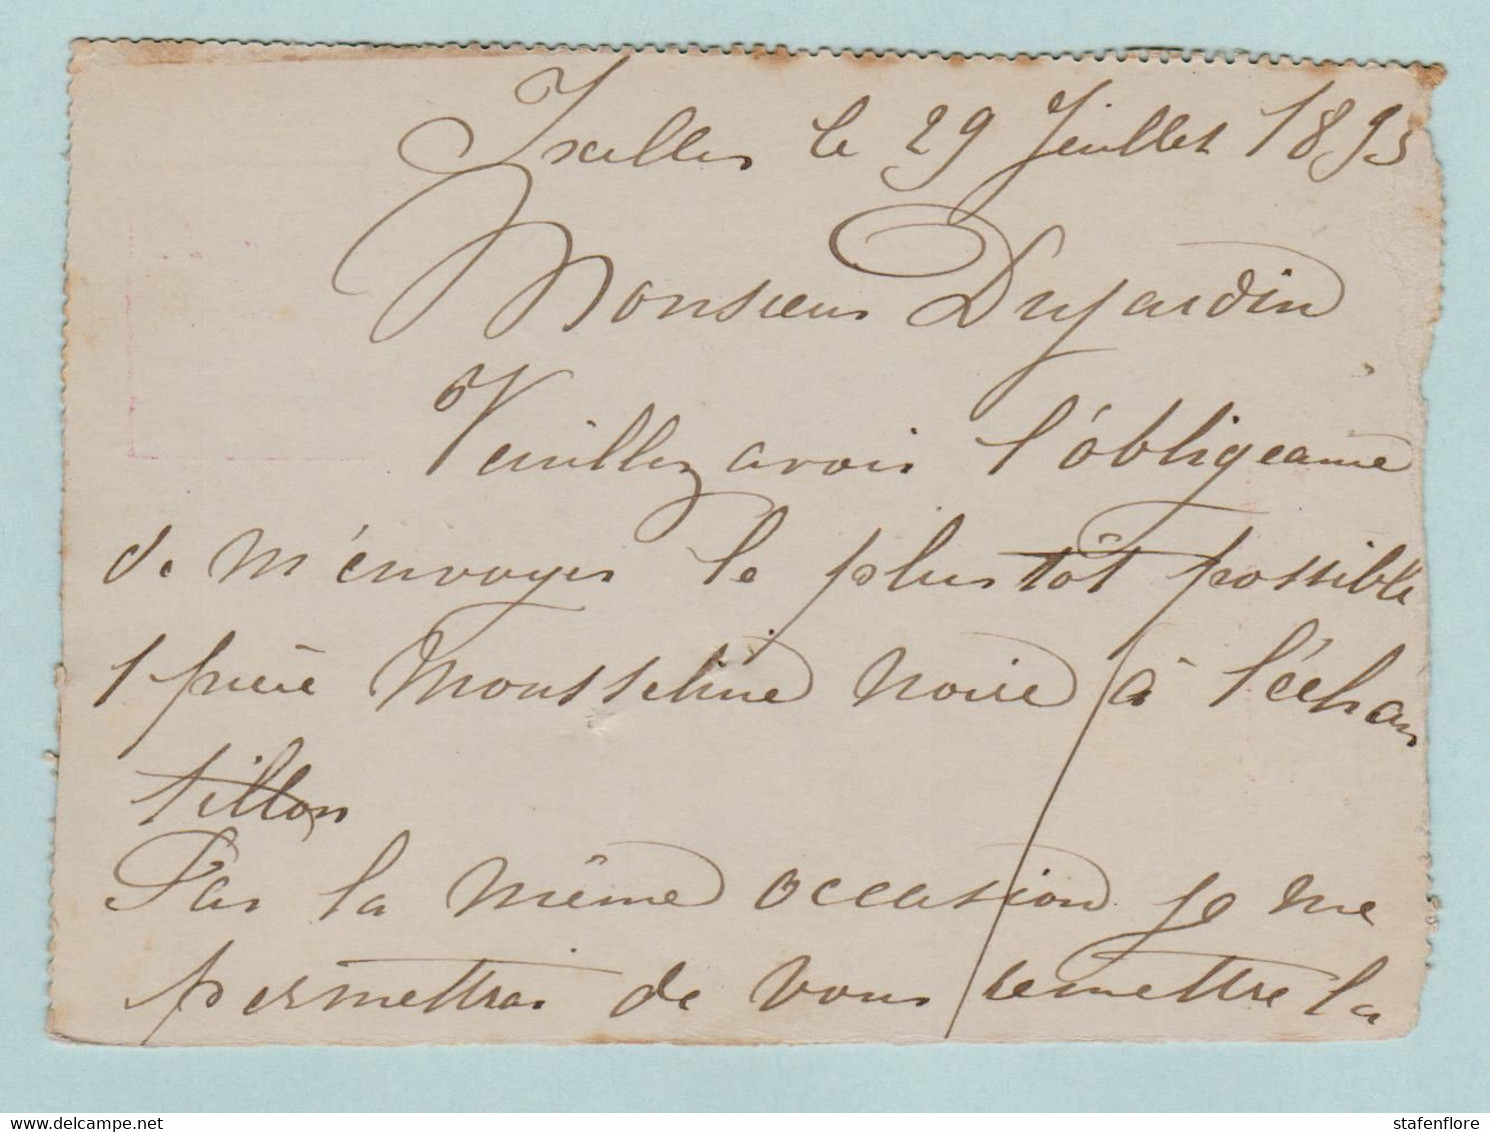 Ixelles le 29 Juillet 1893
Monsieur Dujardin
Veuillez avoir l'obligeance
de m'envoyer le plus tôt possible
1 pièce Mousseline noire à l'échan
tillon
Par la même occasion je me
permettrai de vous remettre la
delcampe.net
stafenflore